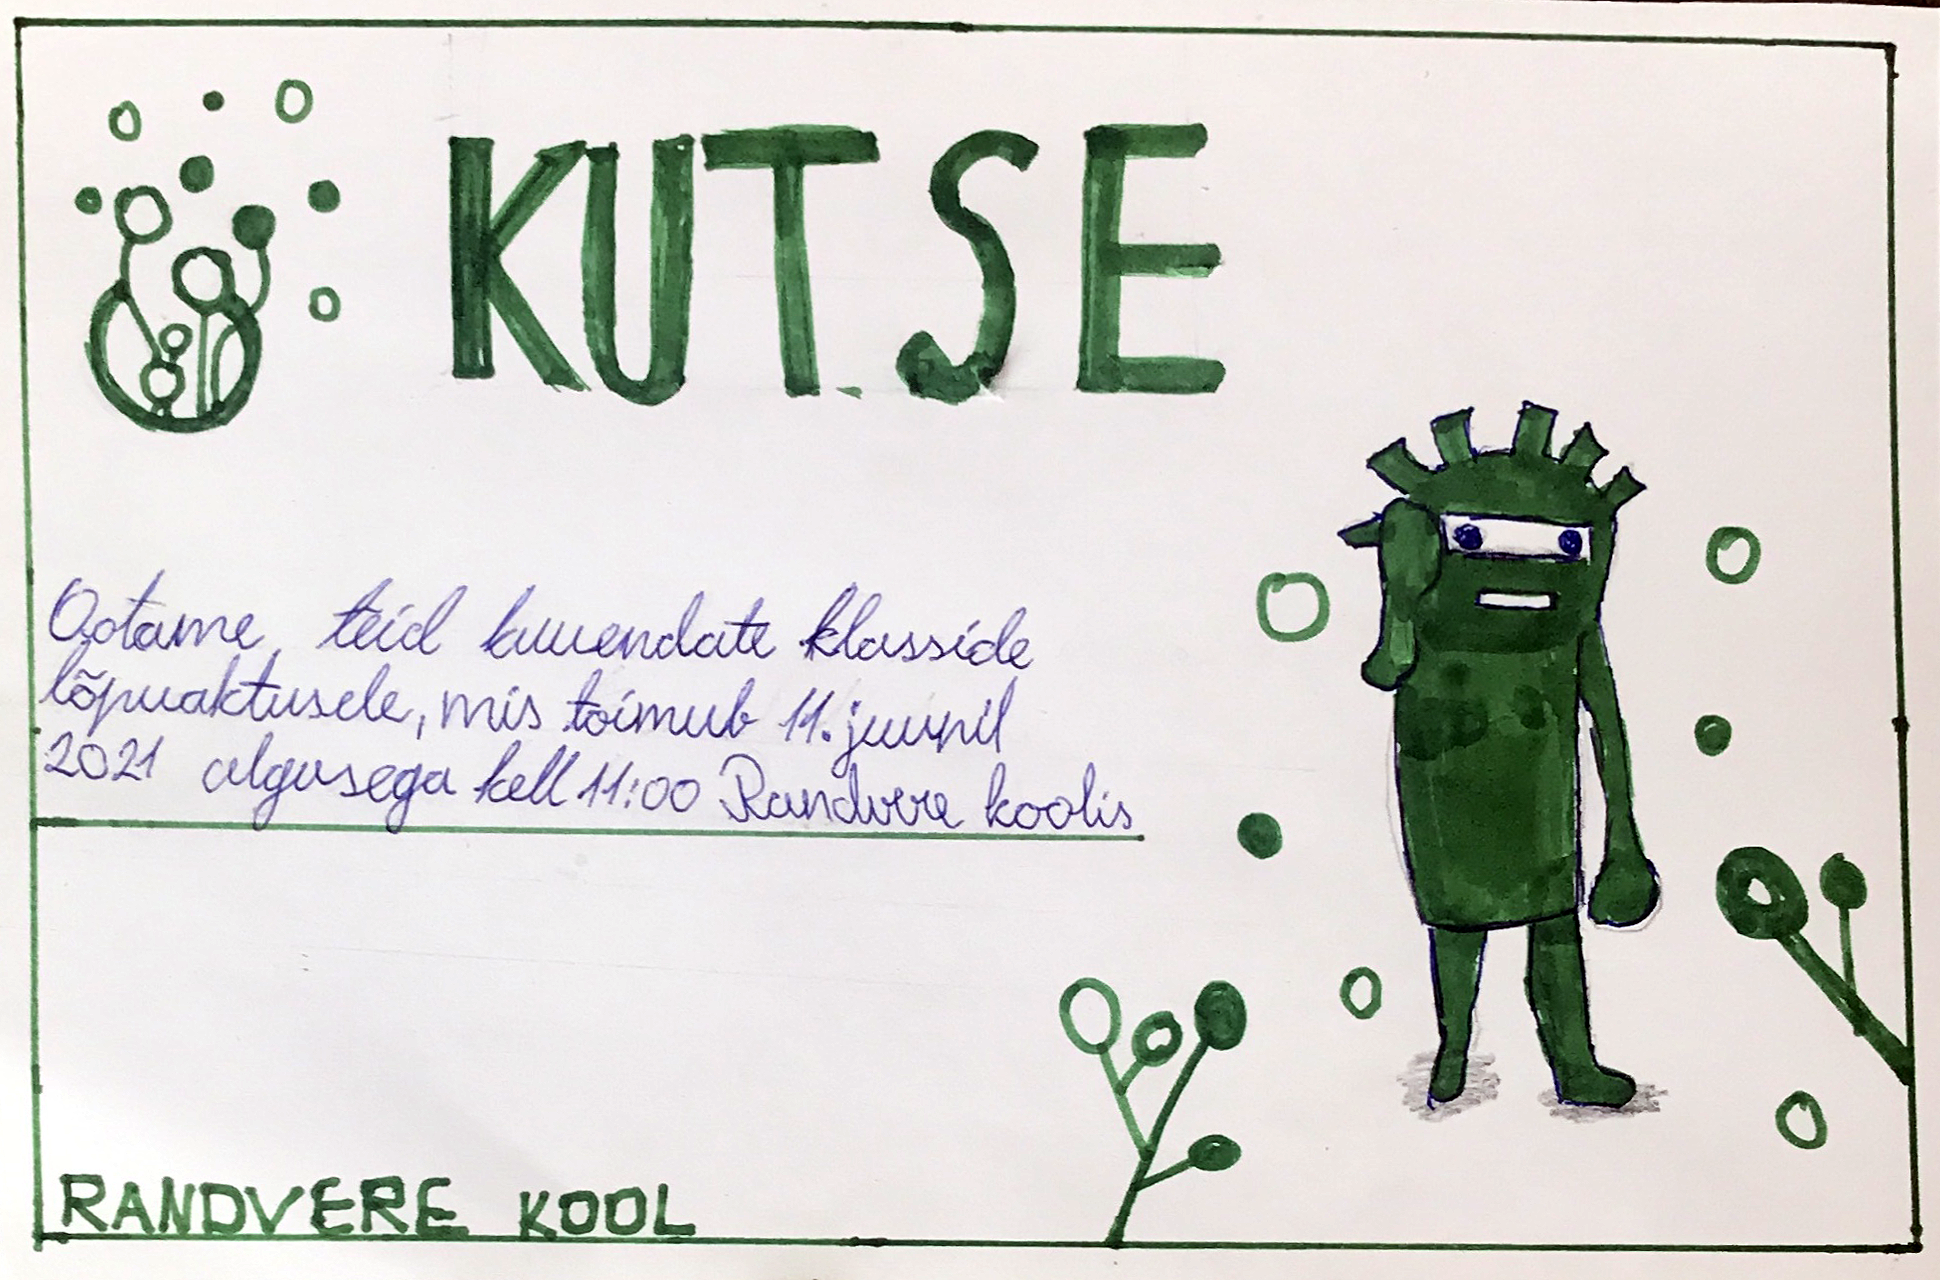 KUTSE
Ootame teid kuuendate klasside
lõpuaktusele, mis toimub 11. juunil
2021 algusega kell 11:00 Randvere koolis
RANDVERE KOOL